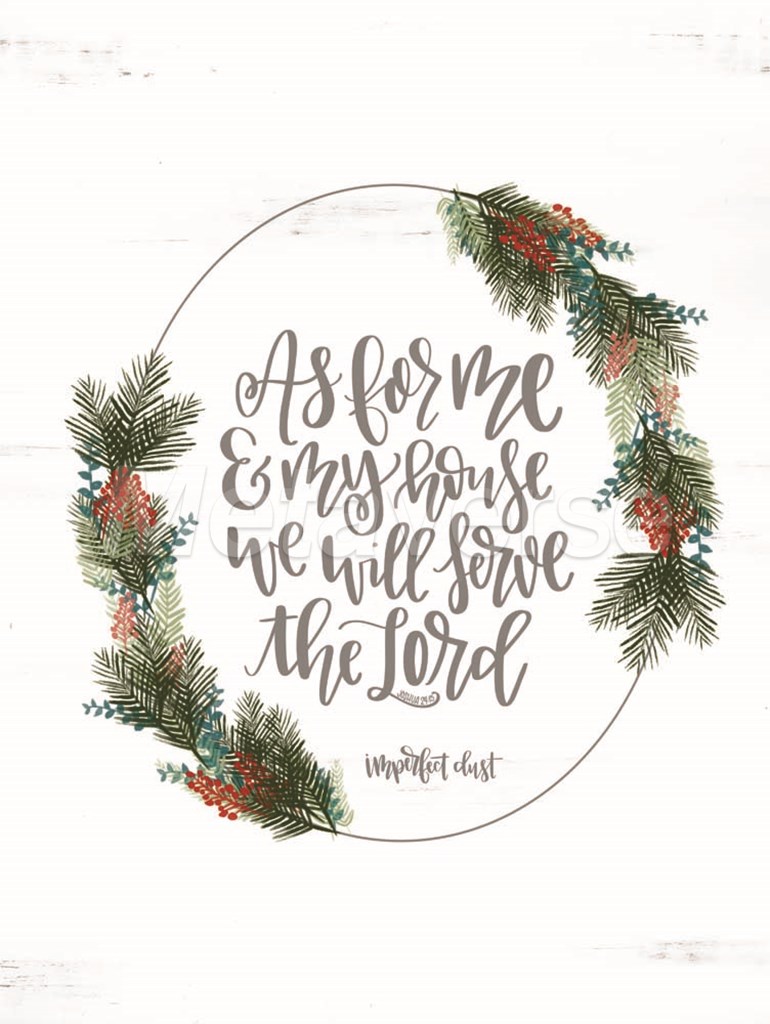 As for me
& my house
we will serve
the Lord
Joshua 24:15
imperfect dust
MetaVerse